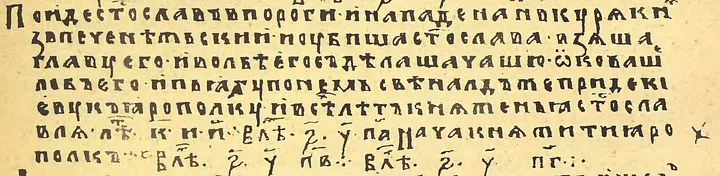 Поидест҃ославъвпороги·инападенанькурѧкн҃
зьпеченѣжьскиииоубишаст҃ослава·взѧша
главуего·ивольѣегосъдѣлашачашю·ѡковаше
лобъего·ипьꙗхупонемь·свѣналдъжепридекі
евукъꙗрополку·ивсѣхлѣтъкнѧженьꙗст҃осла
влѧ·лѣт҃·к҃·и·и҃·:влѣт҃·ѕ҃·у҃·па҃Начакнѧжитиꙗро
полкъ··:влѣт҃·ѕ҃·у҃·пв҃·:·влѣт҃·ѕ҃·у҃·пг҃·:·